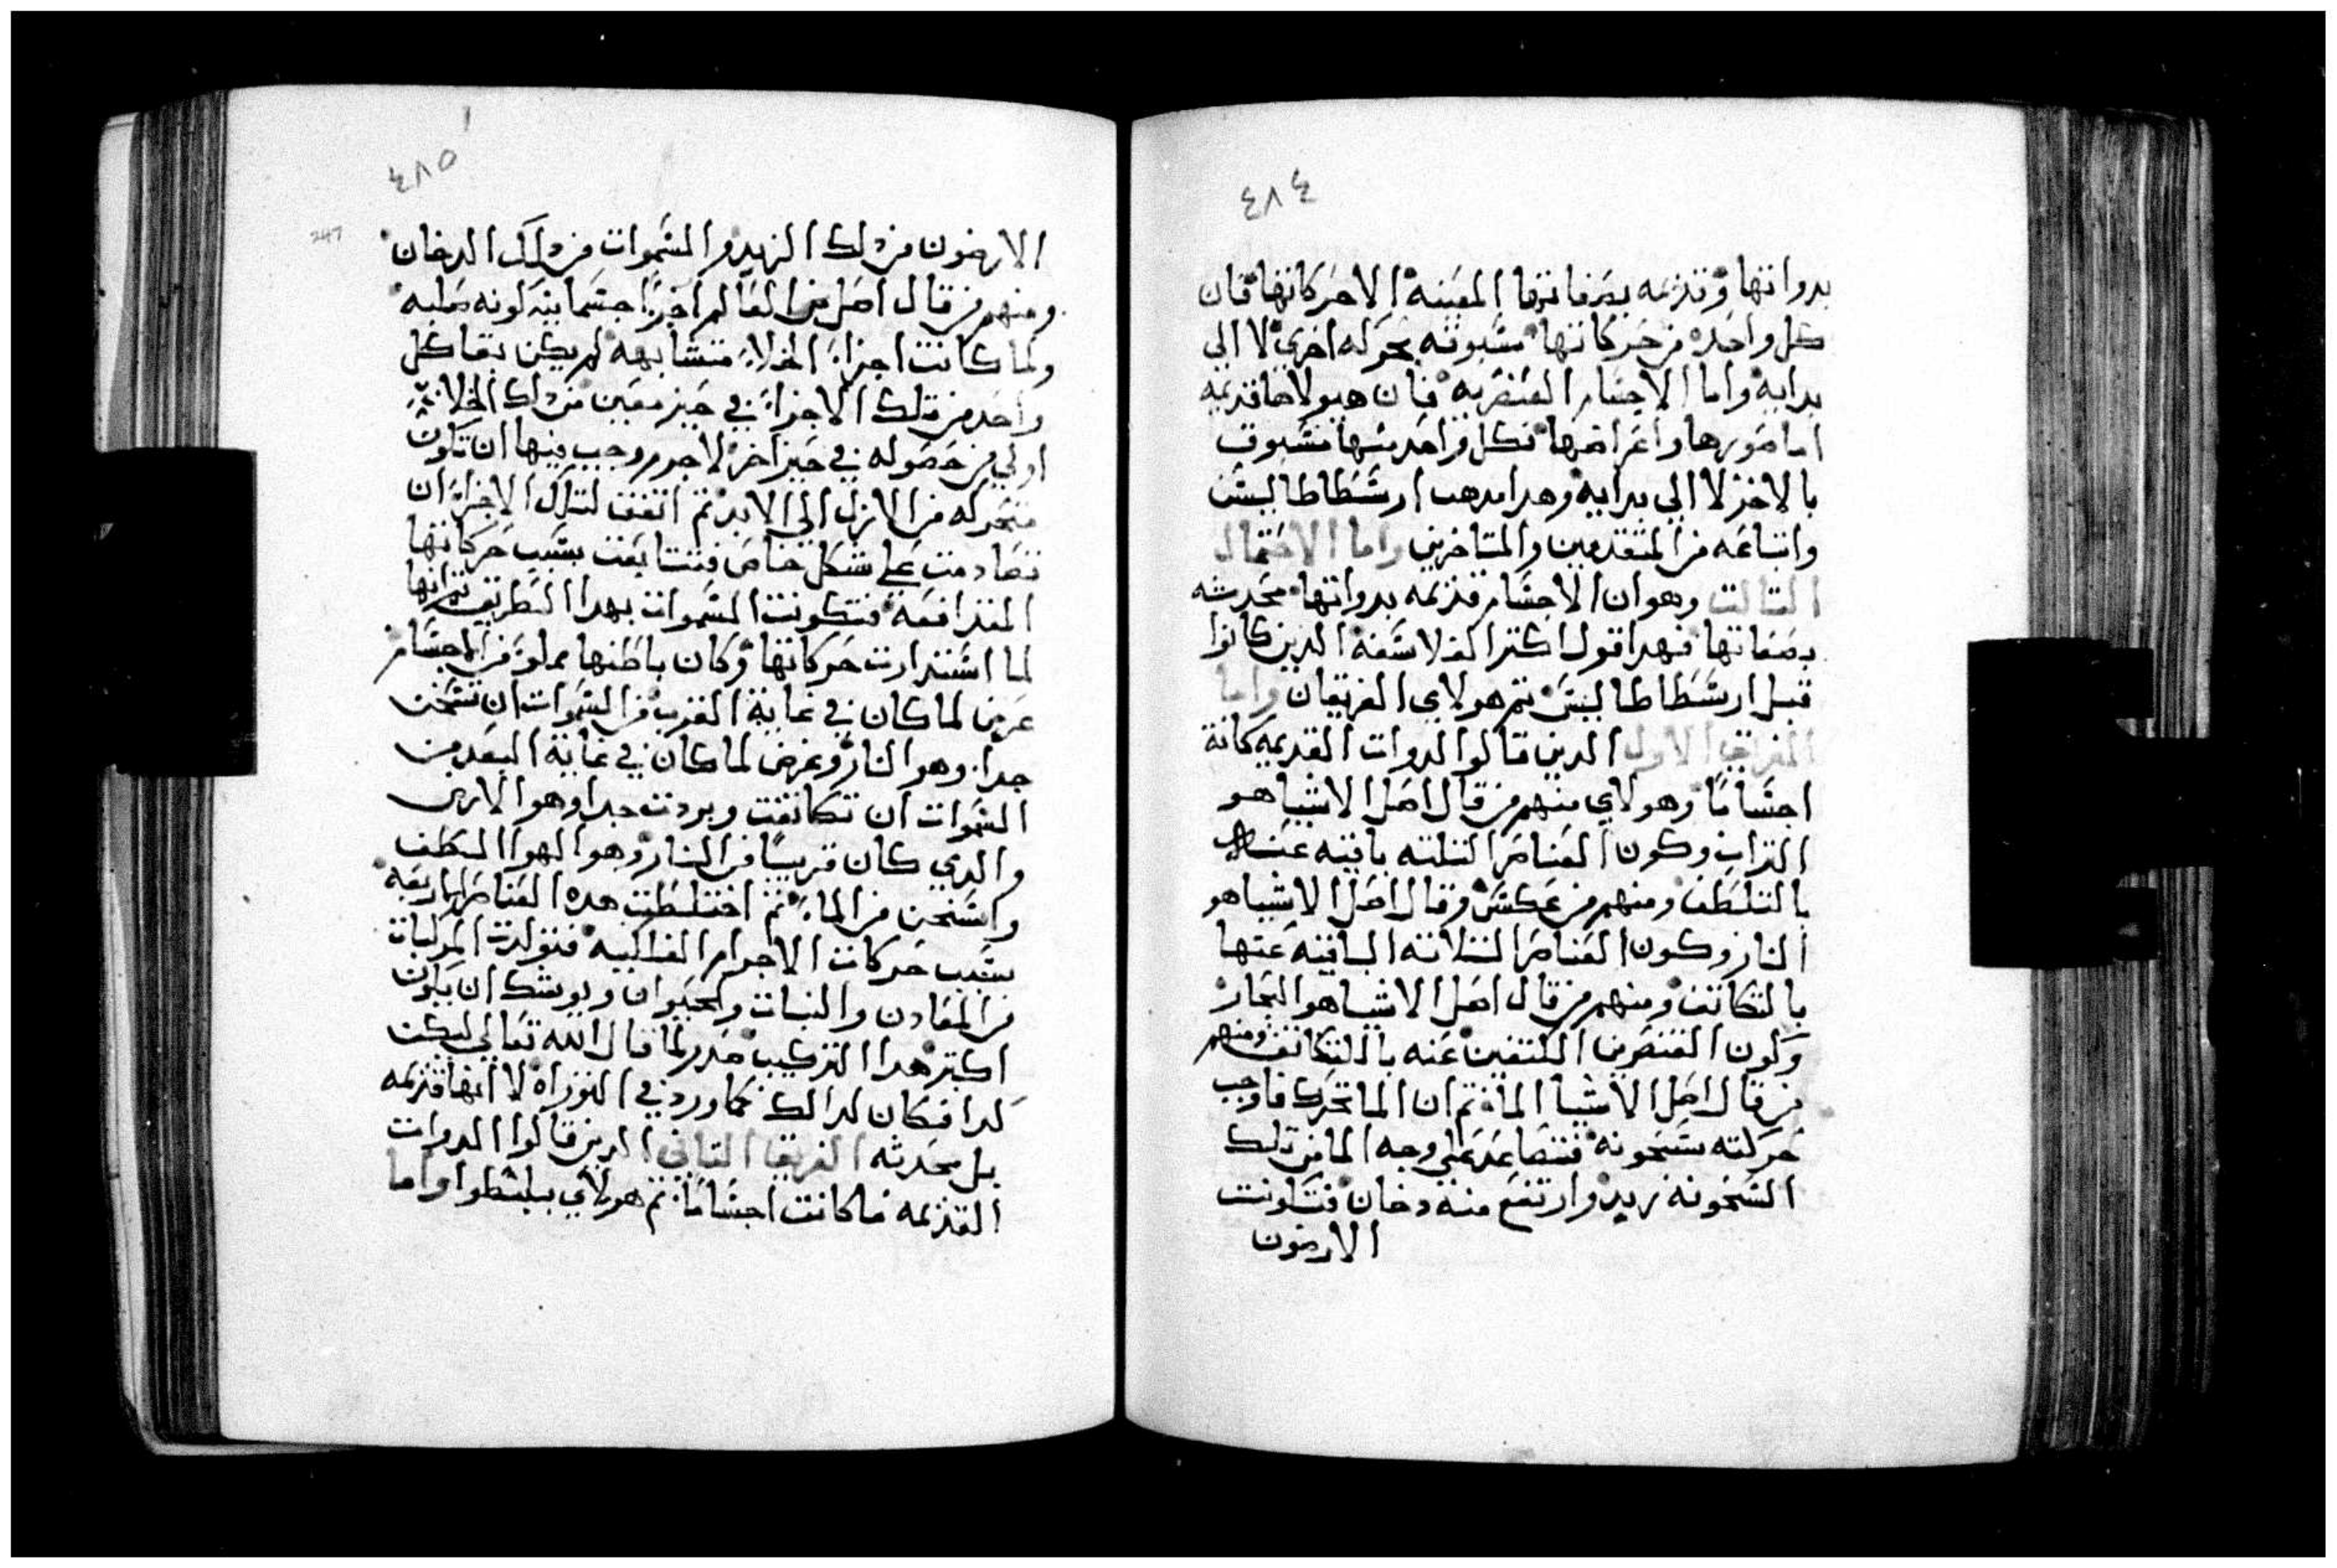 ٤٨٤
بدواتها وقديمه بصفاتها المعينه الا حركاتها فان
كل واحده من حركاتها مسبوقه بحركه اخري لا الي
بدايه واما الاجسام العنصريه فان هيولاها قديمه
اما صورها واعراضها فكل واحد منها مسبوق
بالاخر لا الي بدايه وهدا مدهب ارسطاطاليس
واتباعه من المتقدمين والمتاخرين واما الاحتمال
التالت وهو ان الاجسام قديمه بدواتها محدثه
بصفاتها فهدا قول اكتر الفلاسفه الدين كانوا
قبل ارسطاطاليس تم هولاي الفريقان واما
الفريق الاول الدين قالوا الدوات القديمه كانة
اجسامًا وهولاي منهم من قال اصل الاشيا هو
التراب وكون العناصر التلته باقيه عنه
بالتلطف ومنهم من عكس وقال اصل الاشيا هو
النار وكون العناصر التلاته الباقيه عنها
بالتكاتف ومنهم من قال اصل الاشيا هو البخار
وكون العنصرين عنه بالتكاتف ومنهم
من قال اصل الاشيا الما تم ان الما تحرك فاوجب
حركته سخونه فتصاعد علي وجه الما من تلك
السخونه زبد وارتفع منه دخان فتكونت
الارضون
٤٨٥
247
الارضون من دلك الزبد والسموات من دلك الدخان
ومنهم من قال اصل هدا العالم اجزا جسمانيه كونه صلبه
ولما كانت اجزاء الخلاء متشابهه لم يكن بقا كل
واحد من تلك الاجزاء في حيز معين من دلك الخلاء
اولي من حصوله في حيز اخر لا جرم وجب فيها ان تكون
متحركه من الازل الي الابد تم اتفقت لتلك الاجزاء ان
تصادمت علي شكل خاص فتتابعت بسبب حركاتها
المتدافعه فتكونت السموات بهدا الطريق تم انها
لما استدارت حركاتها وكان باطنها مملو من الاجسام
عرض لما كان في غاية القرب من السموات ان تسخنت
جدا وهو النار وعرض لما كان في غاية البعد من
السموات ان تكاتفت وبردت جدا وهو الارض
والدي كان قريبًا من النار وهو الهوا الطف
واسخن من الماء تم اختلطت هده العناصر الاربعه
بسبب حركات الاجرام الفلكيه فتولدت المركبات
من المعادن والنبات والحيوان ويوشك ان يكون
اكتر هدا التركيب صدر لما قال الله تعالي ليكن
كدا فكان كدالك كما ورد في التوراه لا انها قديمه
بل محدثه الفريق التاني الدين قالوا الدوات
القديمه ما كانت اجسامًا تم هولاي بلشطوا واما